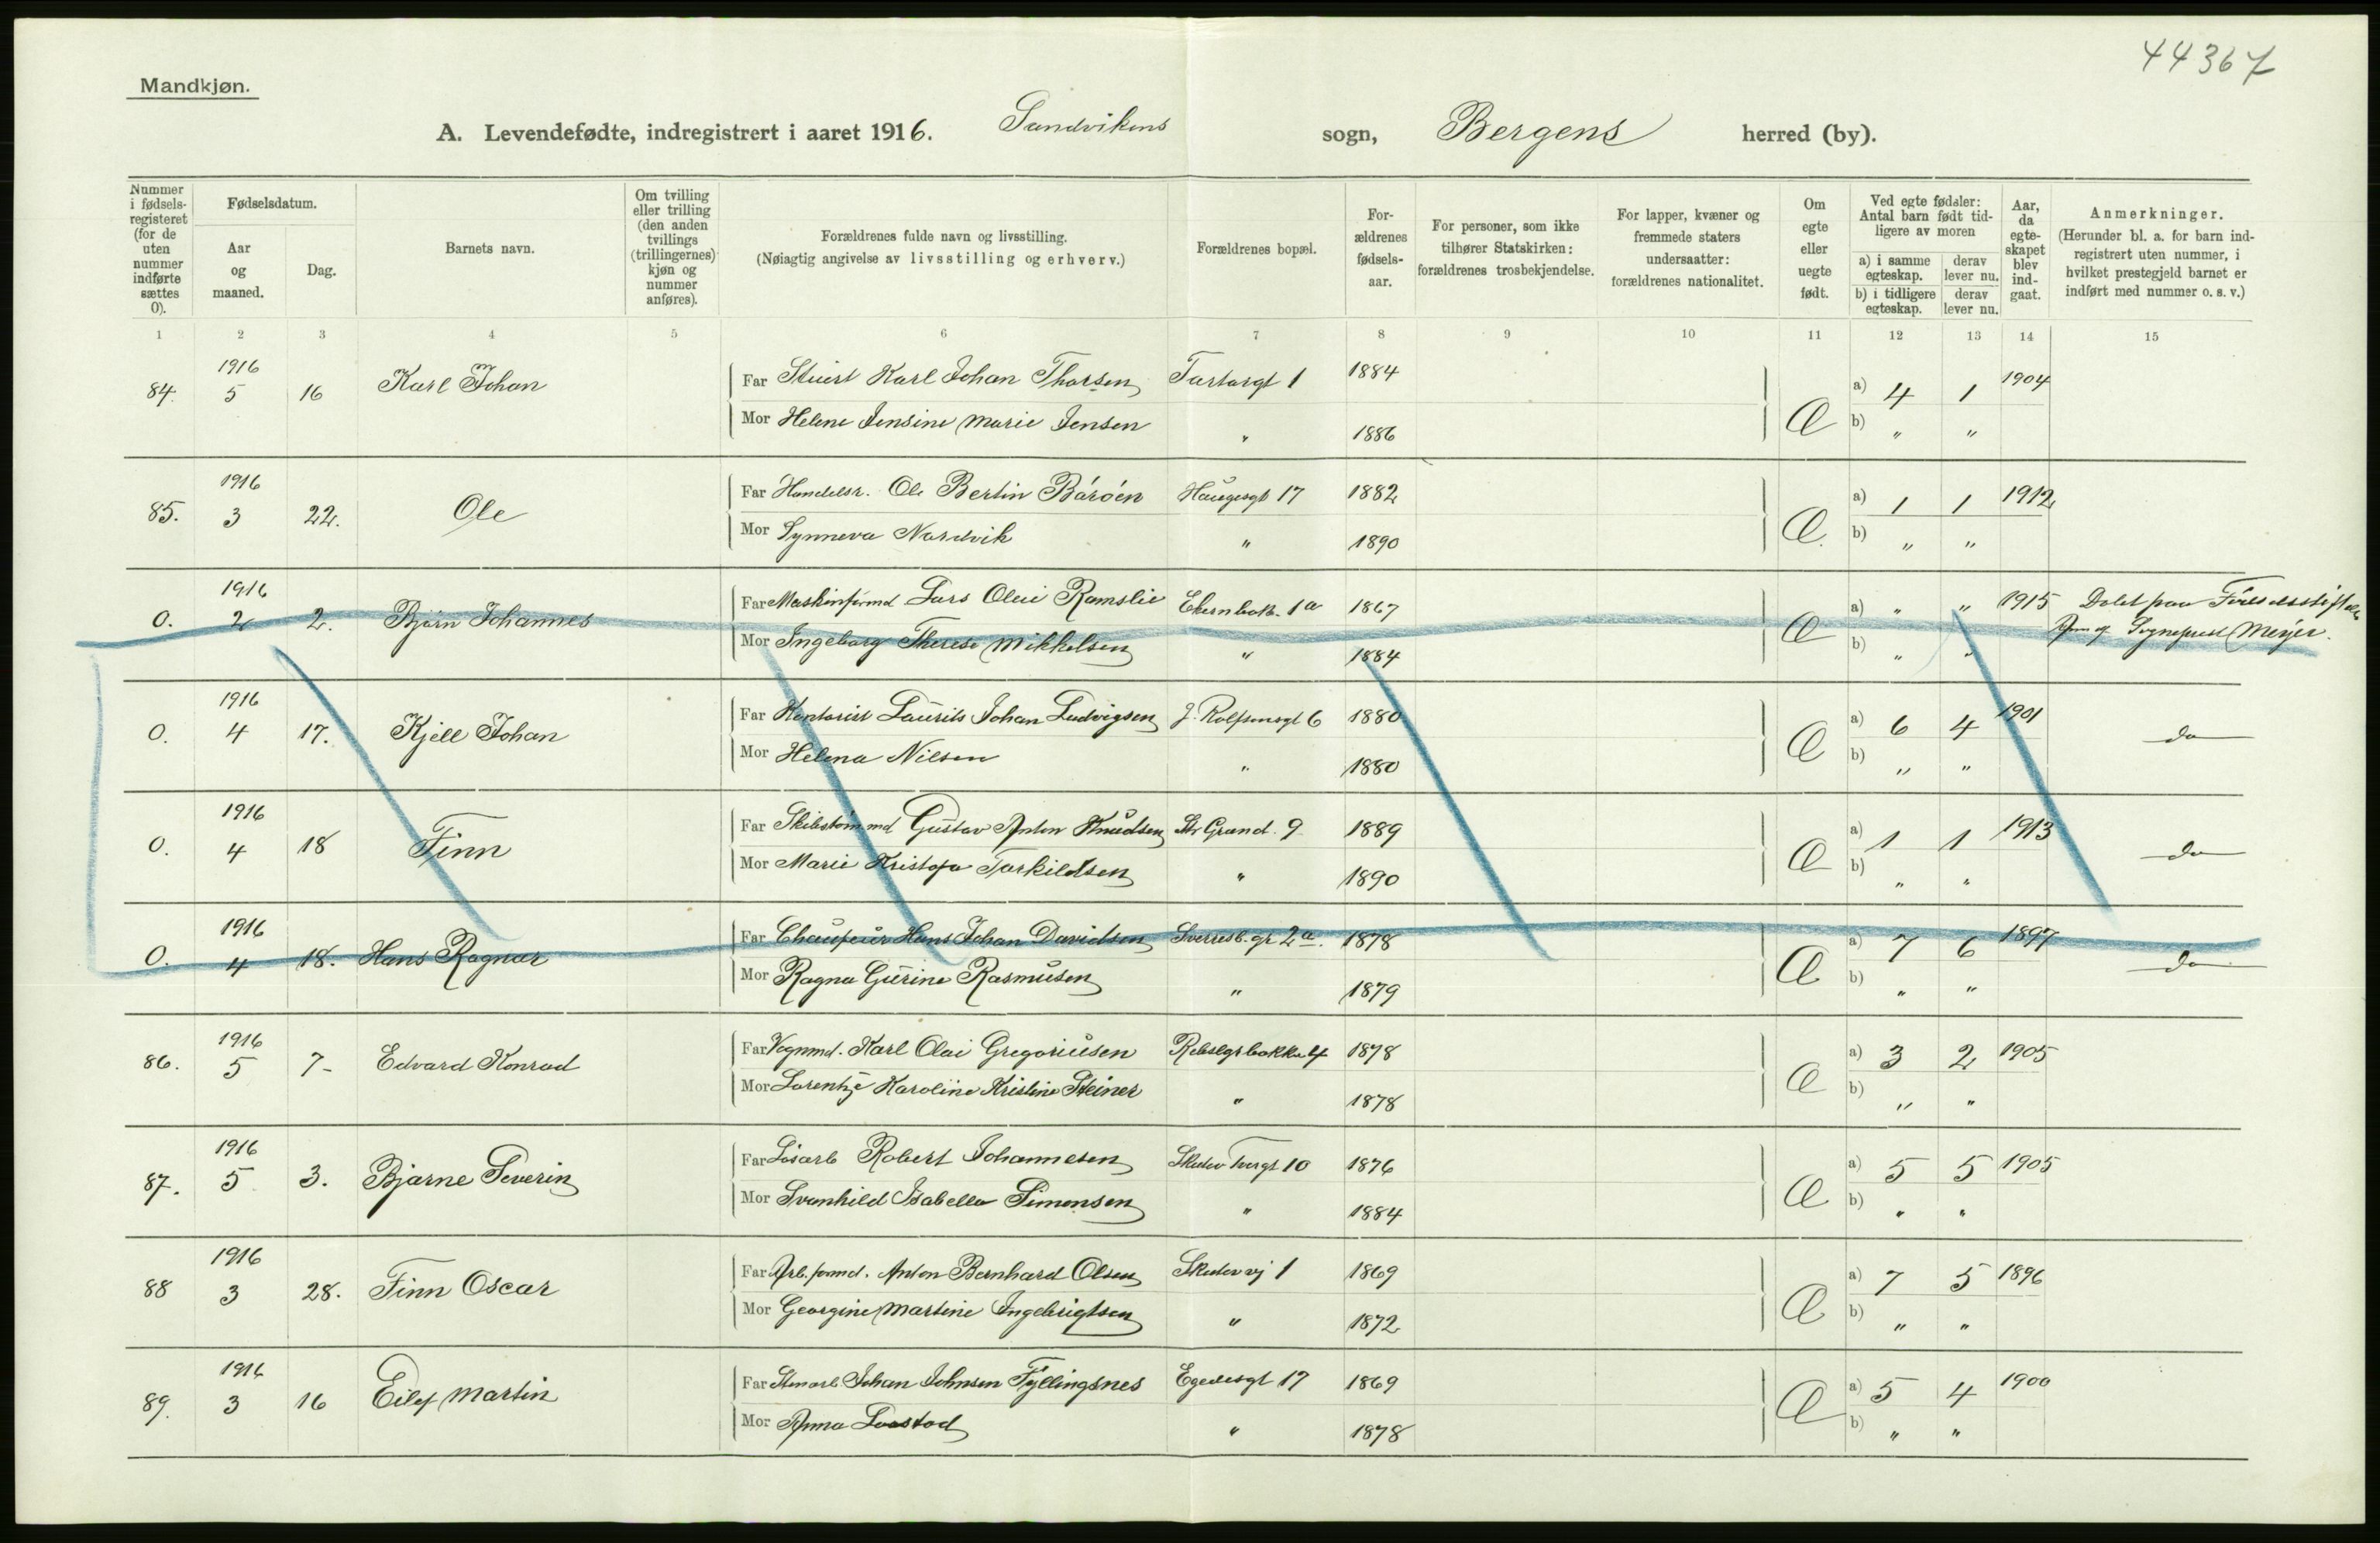 44367
Mandkjøn.
A. Levendefødte, indregistrert i aaret 1916. Sandvikens sogn, Bergens herred (by).
Nummer i fødselsregisteret (for de uten nummer indførte sættes 0).
Fødselsdatum.
Aar og maaned.
Dag.
Barnets navn.
Om tvilling eller trilling (den anden tvillings (trillingernes) kjøn og nummer anføres).
Forældrenes fulde navn og livsstilling.
(Nøiagtig angivelse av livsstilling og erhverv.)
Forældrenes bopæl.
Forældrenes fødselsaar.
For personer, som ikke tilhører Statskirken: forældrenes trosbekjendelse.
For lapper, kvæner og fremmede staters undersaatter: forældrenes nationalitet.
Om egte eller uegte født.
Ved egte fødsler: Antal barn født tidligere av moren
a) i samme egteskap. derav lever nu.
b) i tidligere egteskap. derav lever nu.
Aar, da egteskapet blev indgaat.
Anmerkninger.
(Herunder bl. a. for barn indregistrert uten nummer, i hvilket prestegjeld barnet er indført med nummer o. s. v.)
1 2 3 4 5 6 7 8 9 10 11 12 13 14 15
84. 1916 5 16 Karl Johan Far Stuert Karl Johan Thorsen Tartargt 1 1884 a) 4 1 1904
Mor Helene Jensine Marie Jensen " 1886 Æ b) " "
85. 1916 3 22. Ole Far Handelsr. Ole Bertin Bárøen Haugesgt 17 1882 a) 1 1 1912
Mor Synneva Nordvik " 1890 Æ. b) " "
0. 1916 2 2. Bjørn Johannes Far Maskinformd Lars Olai Ramslie 1a 1867 a) " " 1915 Døbt paa Fødselsstiftelse
Mor Ingeborg Therese Mikkelsen " 1884 Æ b) " " Sogneprest Meyer.
0. 1916 4 17. Kjell Johan Far Kontorist Laurits Johan Ludvigsen J. Rolfsensgt 6 1880 a) 6 4 1901 do
Mor Helena Nilsen " 1880 Æ b) " "
0. 1916 4 18 Finn Far Gustav Anton Knudsen 9 1889 a) 1 1 1913 do
Mor Marie Kristofa Torkildsen " 1890 Æ b) " "
0. 1916 4 18. Hans Ragnar Far Chaufeur Hans Johan Davidsen Sverresb. gr 2a. 1878 a) 7 6 1897 do
Mor Ragna Gurine Rasmusen " 1879 Æ b) " "
86. 1916 5 7- Edvard Konrad Far Vognmd. Karl Olai Gregoriusen 1878 a) 3 2 1905
Mor Lorentze Karoline Kristine Steiner " 1878 Æ b) " "
87. 1916 5 3. Bjarne Severin Far Løsarb Robert Johannesen Skutev Torgt 10 1876 a) 5 5 1905
Mor Svanhild Isabella Simonsen " 1884 Æ b) " "
88 1916 3 28. Finn Oscar Far Arb. formd. Anton Bernhard Olsen Skutevvj 1 1869 a) 7 5 1896
Mor Georgine Martine Ingebrigtsen " 1872 Æ b) " "
89. 1916 3 16 Eilef Martin Far Stenarb Johan Johnsen Fyllingsnes Egedesgt 17 1869 a) 5 4 1900
Mor Anna " 1878 Æ b) " "